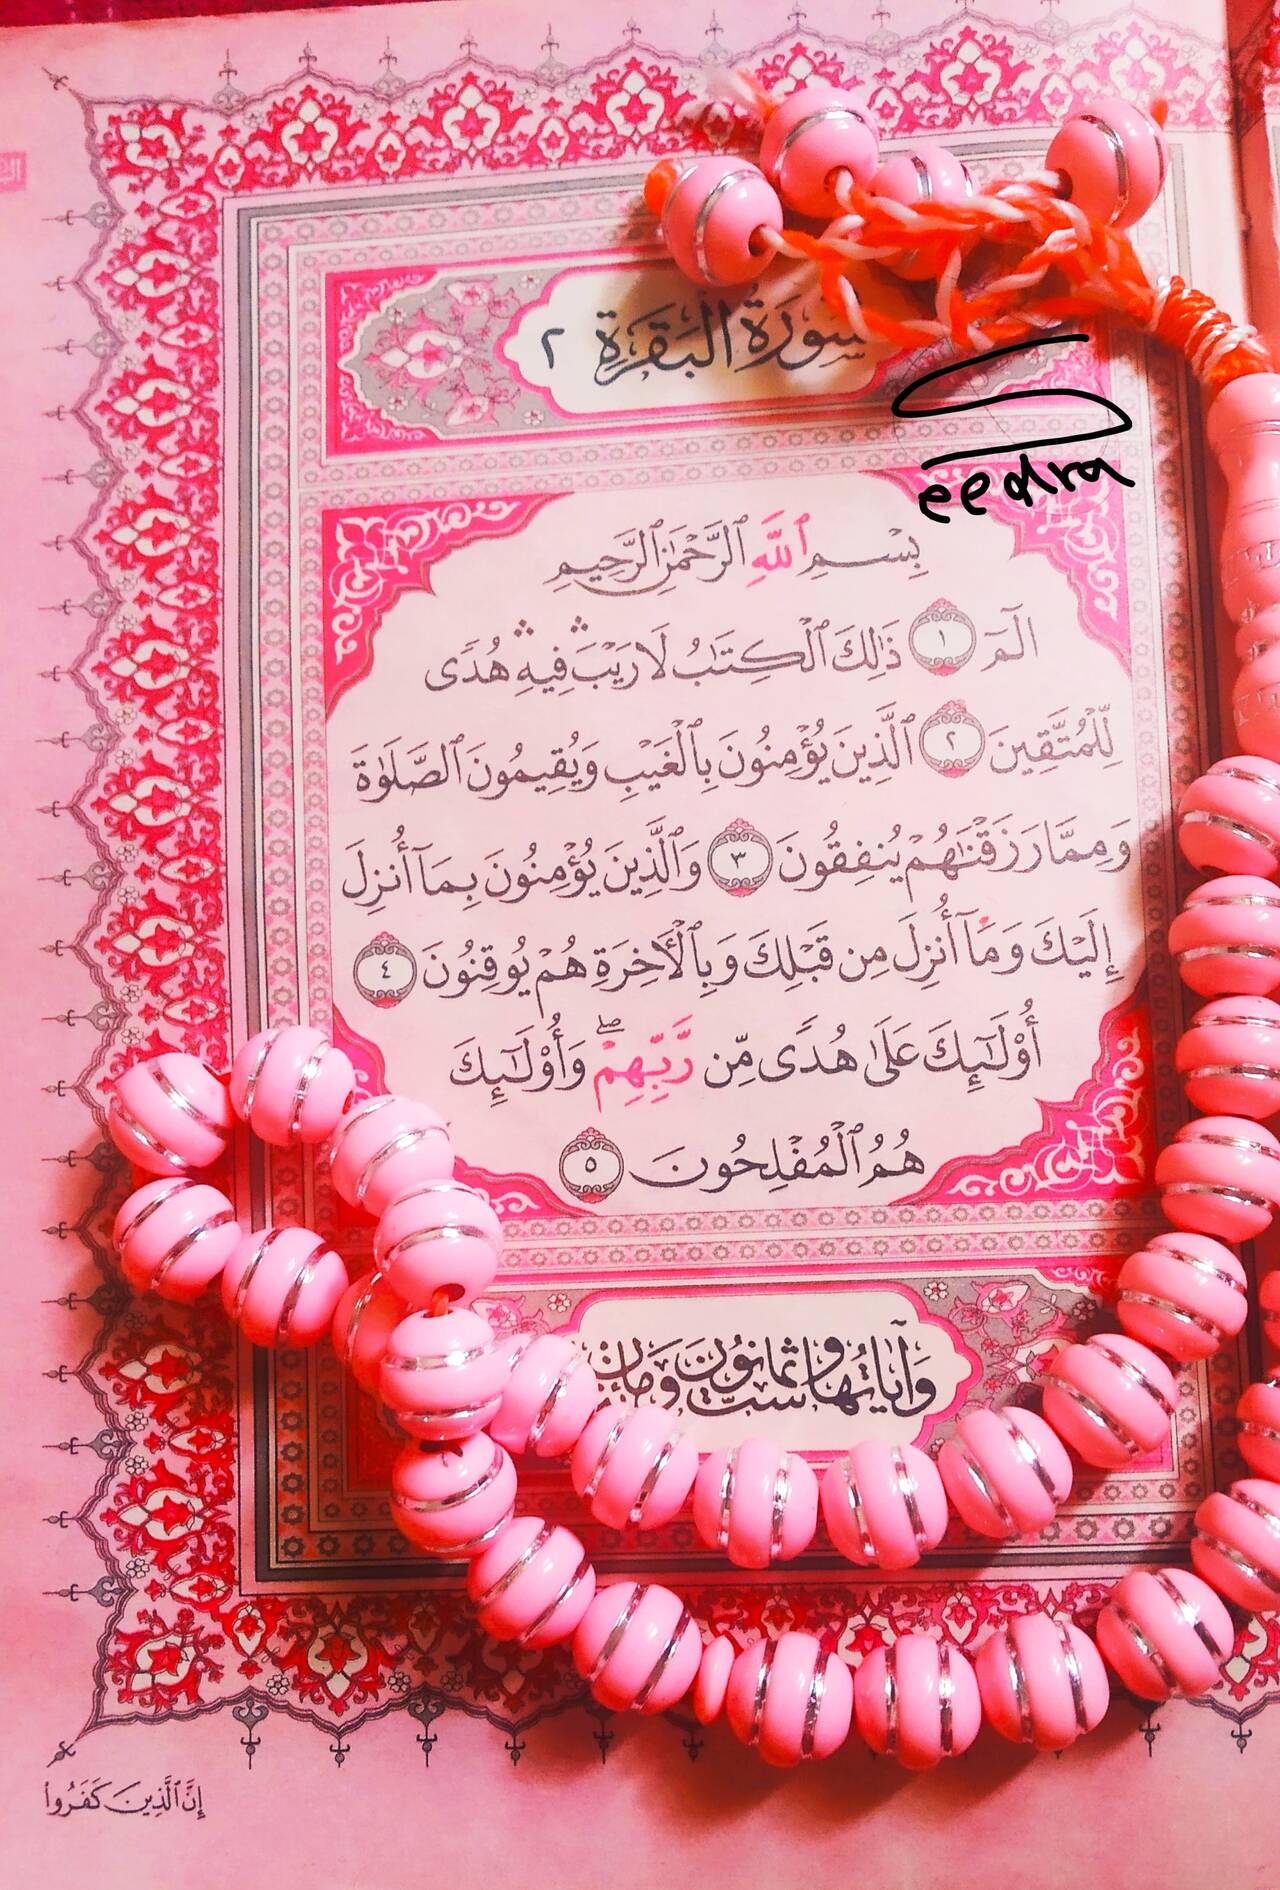 سُورَةُ الْبَقَرَةِ ٢
بِسْمِ ٱللَّهِ ٱلرَّحْمَٰنِ ٱلرَّحِيمِ
الٓمٓ ١ ذَٰلِكَ ٱلْكِتَٰبُ لَا رَيْبَ ۛ فِيهِ ۛ هُدًى
لِّلْمُتَّقِينَ ٢ ٱلَّذِينَ يُؤْمِنُونَ بِٱلْغَيْبِ وَيُقِيمُونَ ٱلصَّلَوٰةَ
وَمِمَّا رَزَقْنَٰهُمْ يُنفِقُونَ ٣ وَٱلَّذِينَ يُؤْمِنُونَ بِمَآ أُنزِلَ
إِلَيْكَ وَمَآ أُنزِلَ مِن قَبْلِكَ وَبِٱلْأَخِرَةِ هُمْ يُوقِنُونَ ٤
أُوْلَٰٓئِكَ عَلَىٰ هُدًى مِّن رَّبِّهِمْ ۖ وَأُوْلَٰٓئِكَ
هُمُ ٱلْمُفْلِحُونَ ٥
وَآيَاتُهَا سِتٌّ وَثَمَانُونَ وَمَائ
إِنَّ ٱلَّذِينَ كَفَرُوا۟